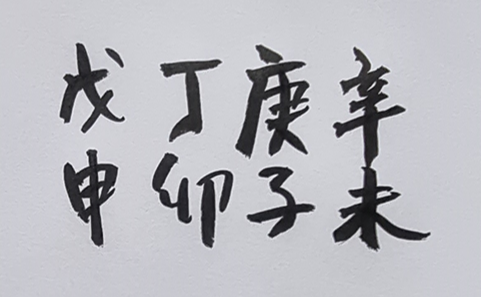 辛未
庚子
丁卯
戊申